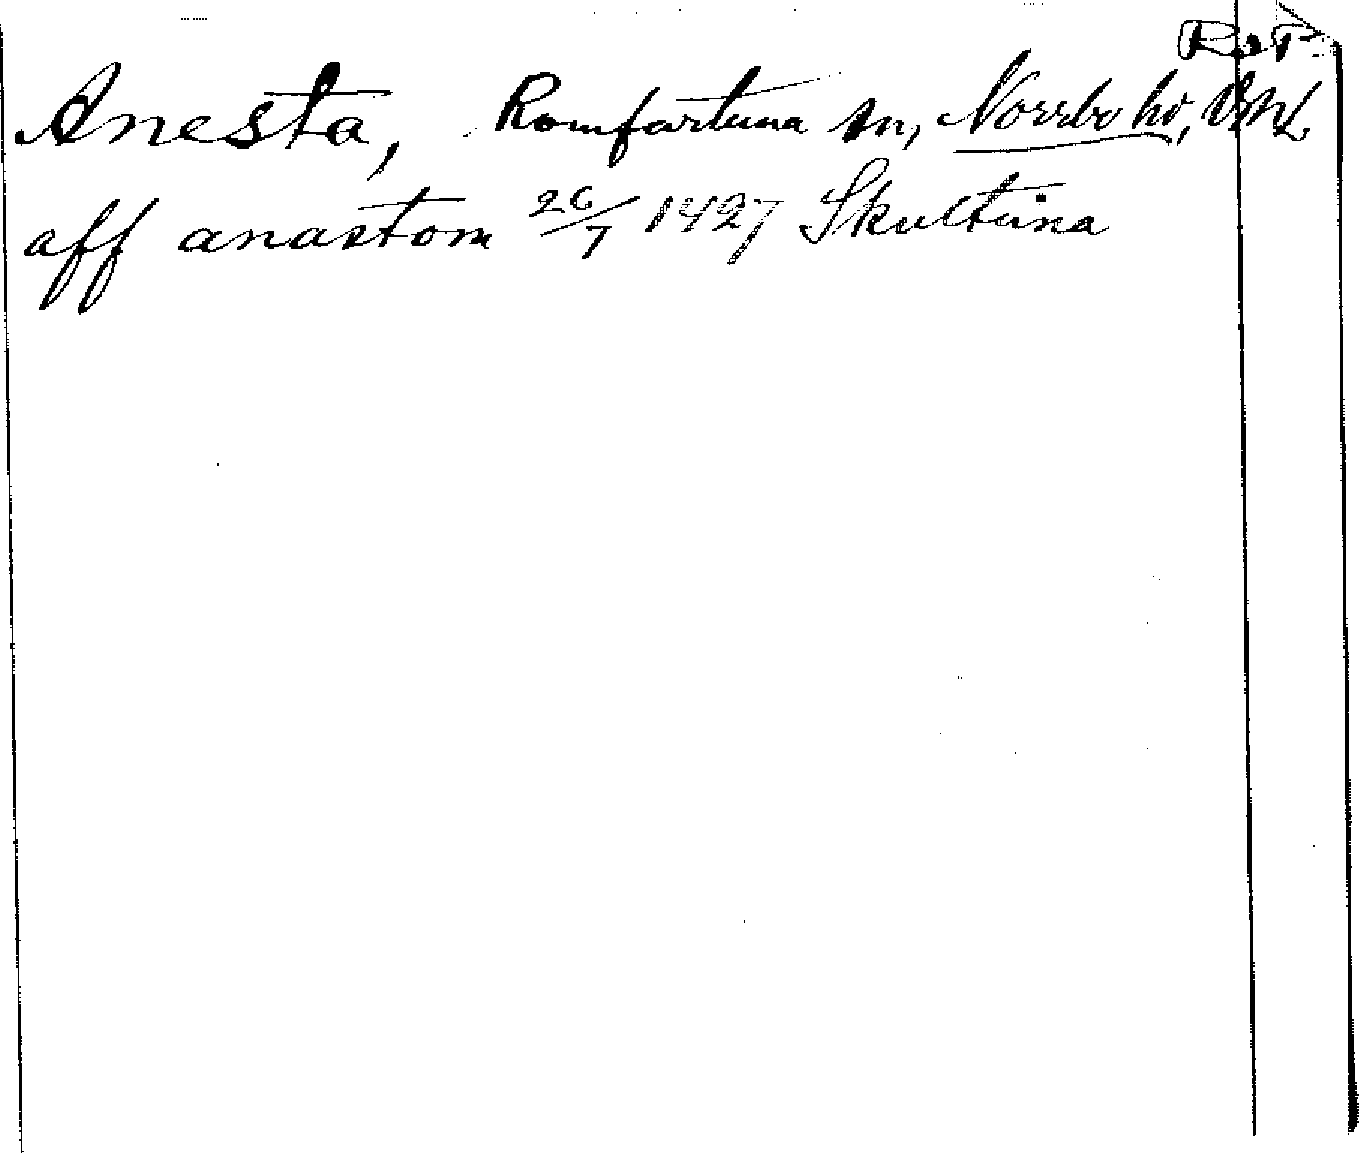 RaT.
Anesta, Romfartuna sn, Norrbo hd, Vml.
aff anastom 26/7 1427 Skultuna